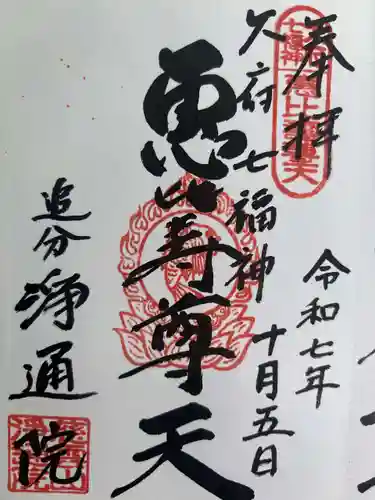 奉拝
大府七福神
令和七年
十月五日
恵比寿尊天
追分
浄通院